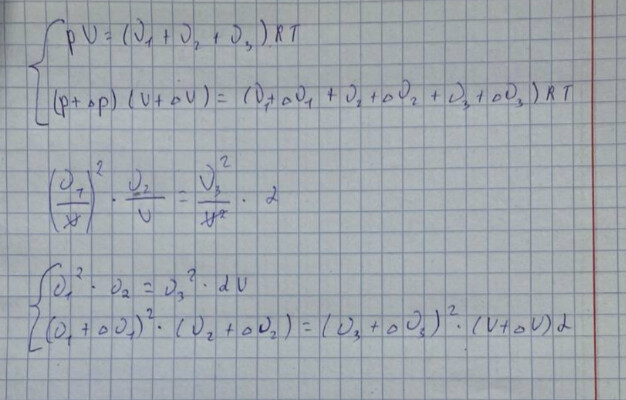 pV = (ν₁ + ν₂ + ν₃) RT
(p+Δp) (V+ΔV) = (ν₁+Δν₁ + ν₂+Δν₂ + ν₃+Δν₃) RT
(ν₁/V)² · ν₂/V = ν₃²/V² · α
ν₁² · ν₂ = ν₃² · αV
(ν₁ + Δν₁)² · (ν₂ + Δν₂) = (ν₃ + Δν₃)² · (V+ΔV) α